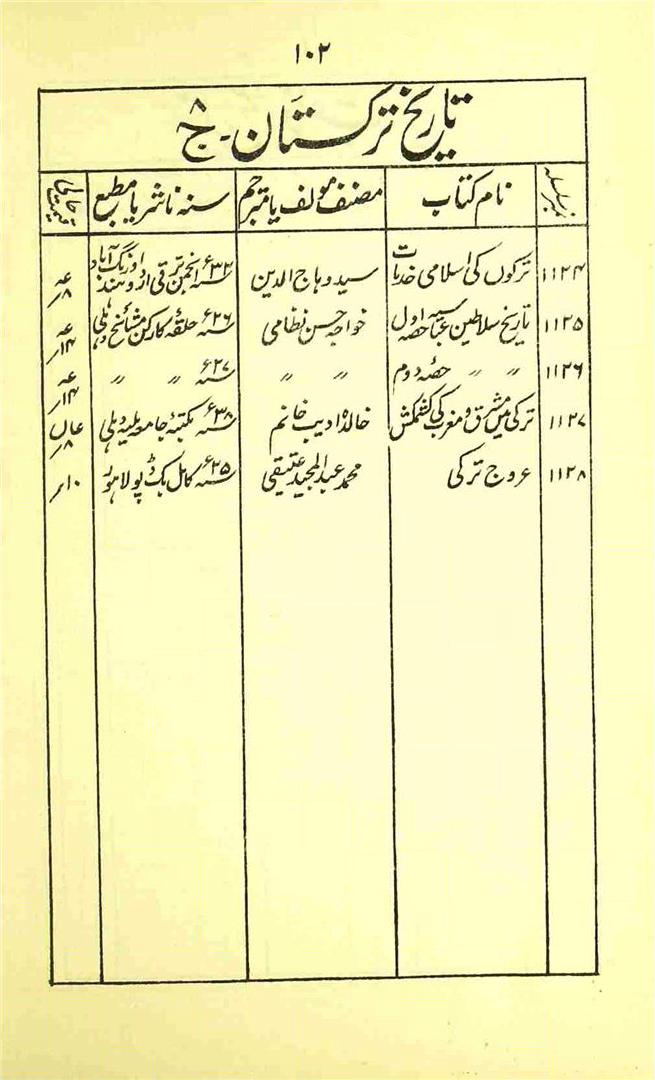 ۱۰۲
تاریخ ترکستان - ج ۸
نمبر سلسلہ نام کتاب مصنف مولف یا مترجم سنہ ناشر یا مطبع قیمت حالی
۱۱۲۴ ترکوں کی اسلامی خدمات سید وہاج الدین سنہ ۳۲ء انجمن ترقی اردو ہند اورنگ آباد عہ ۸ر
۱۱۲۵ تاریخ سلاطین عباسیہ حصہ اول خواجہ حسن نظامی سنہ ۲۶ء حلقۂ کارکن مشائخ دہلی عہ ۱۴ر
۱۱۲۶ " " حصۂ دوم " " سنہ ۲۷ء " " عہ ۱۴ر
۱۱۲۷ ترکی میں مشرق و مغرب کی کشمکش خالدہ ادیب خانم سنہ ۳۸ء مکتبۂ جامعہ ملیہ دہلی ۸ر
۱۱۲۸ عروج ترکی محمد عبدالمجید عتیقی سنہ ۲۵ء کامل بک ڈپو لاہور ۱۰ر